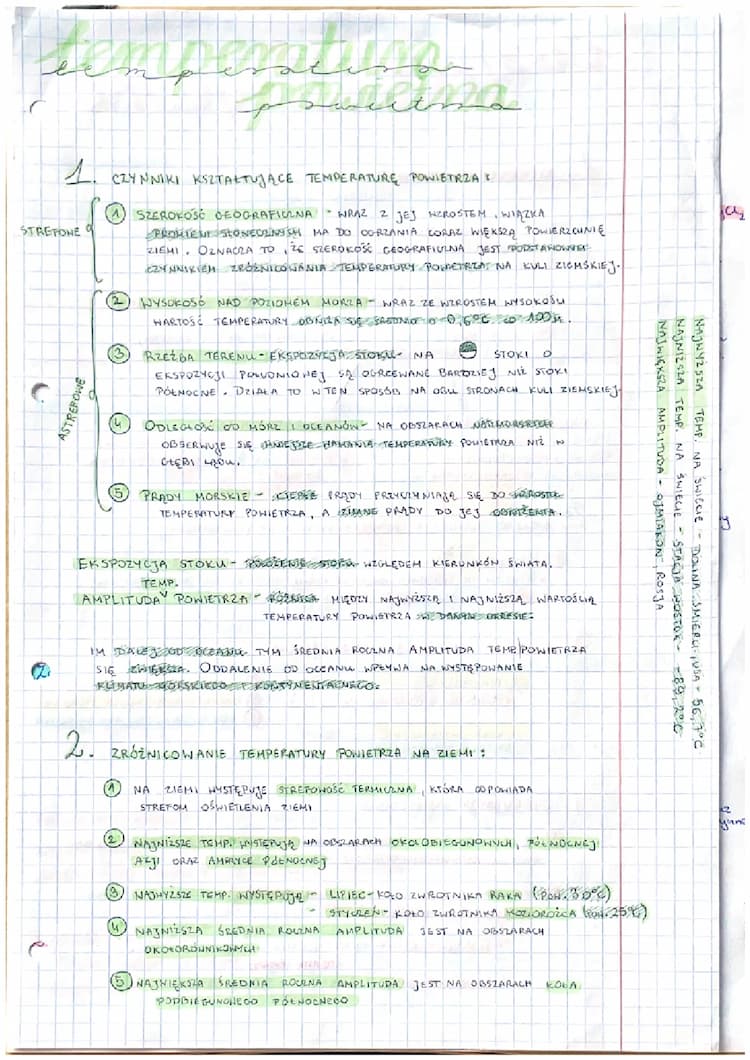 temperatura
powietrza
1. CZYNNIKI KSZTAŁTUJĄCE TEMPERATURĘ POWIETRZA:
STREFOWE
1 SZEROKOŚĆ GEOGRAFICZNA - WRAZ Z JEJ WZROSTEM, WIĄZKA
PROMIENI SŁONECZNYCH MA DO OGRZANIA CORAZ WIĘKSZĄ POWIERZCHNIĘ
ZIEMI. OZNACZA TO, ŻE SZEROKOŚĆ GEOGRAFICZNA JEST PODSTAWOWYM
CZYNNIKIEM ZRÓŻNICOWANIA TEMPERATURY POWIETRZA NA KULI ZIEMSKIEJ.
ASTREFOWE
2 WYSOKOŚĆ NAD POZIOMEM MORZA - WRAZ ZE WZROSTEM WYSOKOŚCI
WARTOŚĆ TEMPERATURY OBNIŻA SIĘ ŚREDNIO O 0,6°C CO 100M.
3 RZEŹBA TERENU - EKSPOZYCJA STOKU - NA STOKI O
EKSPOZYCJI POŁUDNIOWEJ SĄ OGRZEWANE BARDZIEJ NIŻ STOKI
PÓŁNOCNE. DZIAŁA TO W TEN SPOSÓB NA OBU STRONACH KULI ZIEMSKIEJ.
4 ODLEGŁOŚĆ OD MÓRZ I OCEANÓW - NA OBSZARACH NADMORSKICH
OBSERWUJE SIĘ MNIEJSZE WAHANIA TEMPERATURY POWIETRZA NIŻ W
GŁĘBI LĄDU.
5 PRĄDY MORSKIE - CIEPŁE PRĄDY PRZYCZYNIAJĄ SIĘ DO WZROSTU
TEMPERATURY POWIETRZA, A ZIMNE PRĄDY DO JEJ OBNIŻENIA.
EKSPOZYCJA STOKU - POŁOŻENIE STOKU WZGLĘDEM KIERUNKÓW ŚWIATA.
TEMP.
AMPLITUDA POWIETRZA - RÓŻNICA MIĘDZY NAJWYŻSZĄ I NAJNIŻSZĄ WARTOŚCIĄ
TEMPERATURY POWIETRZA W DANYM OKRESIE.
IM DALEJ OD OCEANU TYM ŚREDNIA ROCZNA AMPLITUDA TEMP POWIETRZA
SIĘ ZWIĘKSZA. ODDALENIE OD OCEANU WPŁYWA NA WYSTĘPOWANIE
KLIMATU MORSKIEGO I KONTYNENTALNEGO.
2. ZRÓŻNICOWANIE TEMPERATURY POWIETRZA NA ZIEMI:
1 NA ZIEMI WYSTĘPUJE STREFOWOŚĆ TERMICZNA, KTÓRA ODPOWIADA
STREFOM OŚWIETLENIA ZIEMI
2 NAJNIŻSZE TEMP. WYSTĘPUJĄ NA OBSZARACH OKOŁOBIEGUNOWYCH, PÓŁNOCNEJ
AZJI ORAZ AMERYCE PÓŁNOCNEJ
3 NAJWYŻSZE TEMP. WYSTĘPUJĄ - LIPIEC - KOŁO ZWROTNIKA RAKA (POW. 30°C)
- STYCZEŃ - KOŁO ZWROTNIKA KOZIOROŻCA (POW. 25°C)
4 NAJNIŻSZA ŚREDNIA ROCZNA AMPLITUDA JEST NA OBSZARACH
OKOŁORÓWNIKOWYCH
5 NAJWIĘKSZA ŚREDNIA ROCZNA AMPLITUDA JEST NA OBSZARACH KOŁA
PODBIEGUNOWEGO PÓŁNOCNEGO
NAJWYŻSZA TEMP. NA ŚWIECIE - DOLINA ŚMIERCI, USA - 56,7°C
NAJNIŻSZA TEMP. NA ŚWIECIE - STACJA WOSTOK - -89,2°C
NAJWIĘKSZA AMPLITUDA - OJMIAKON, ROSJA